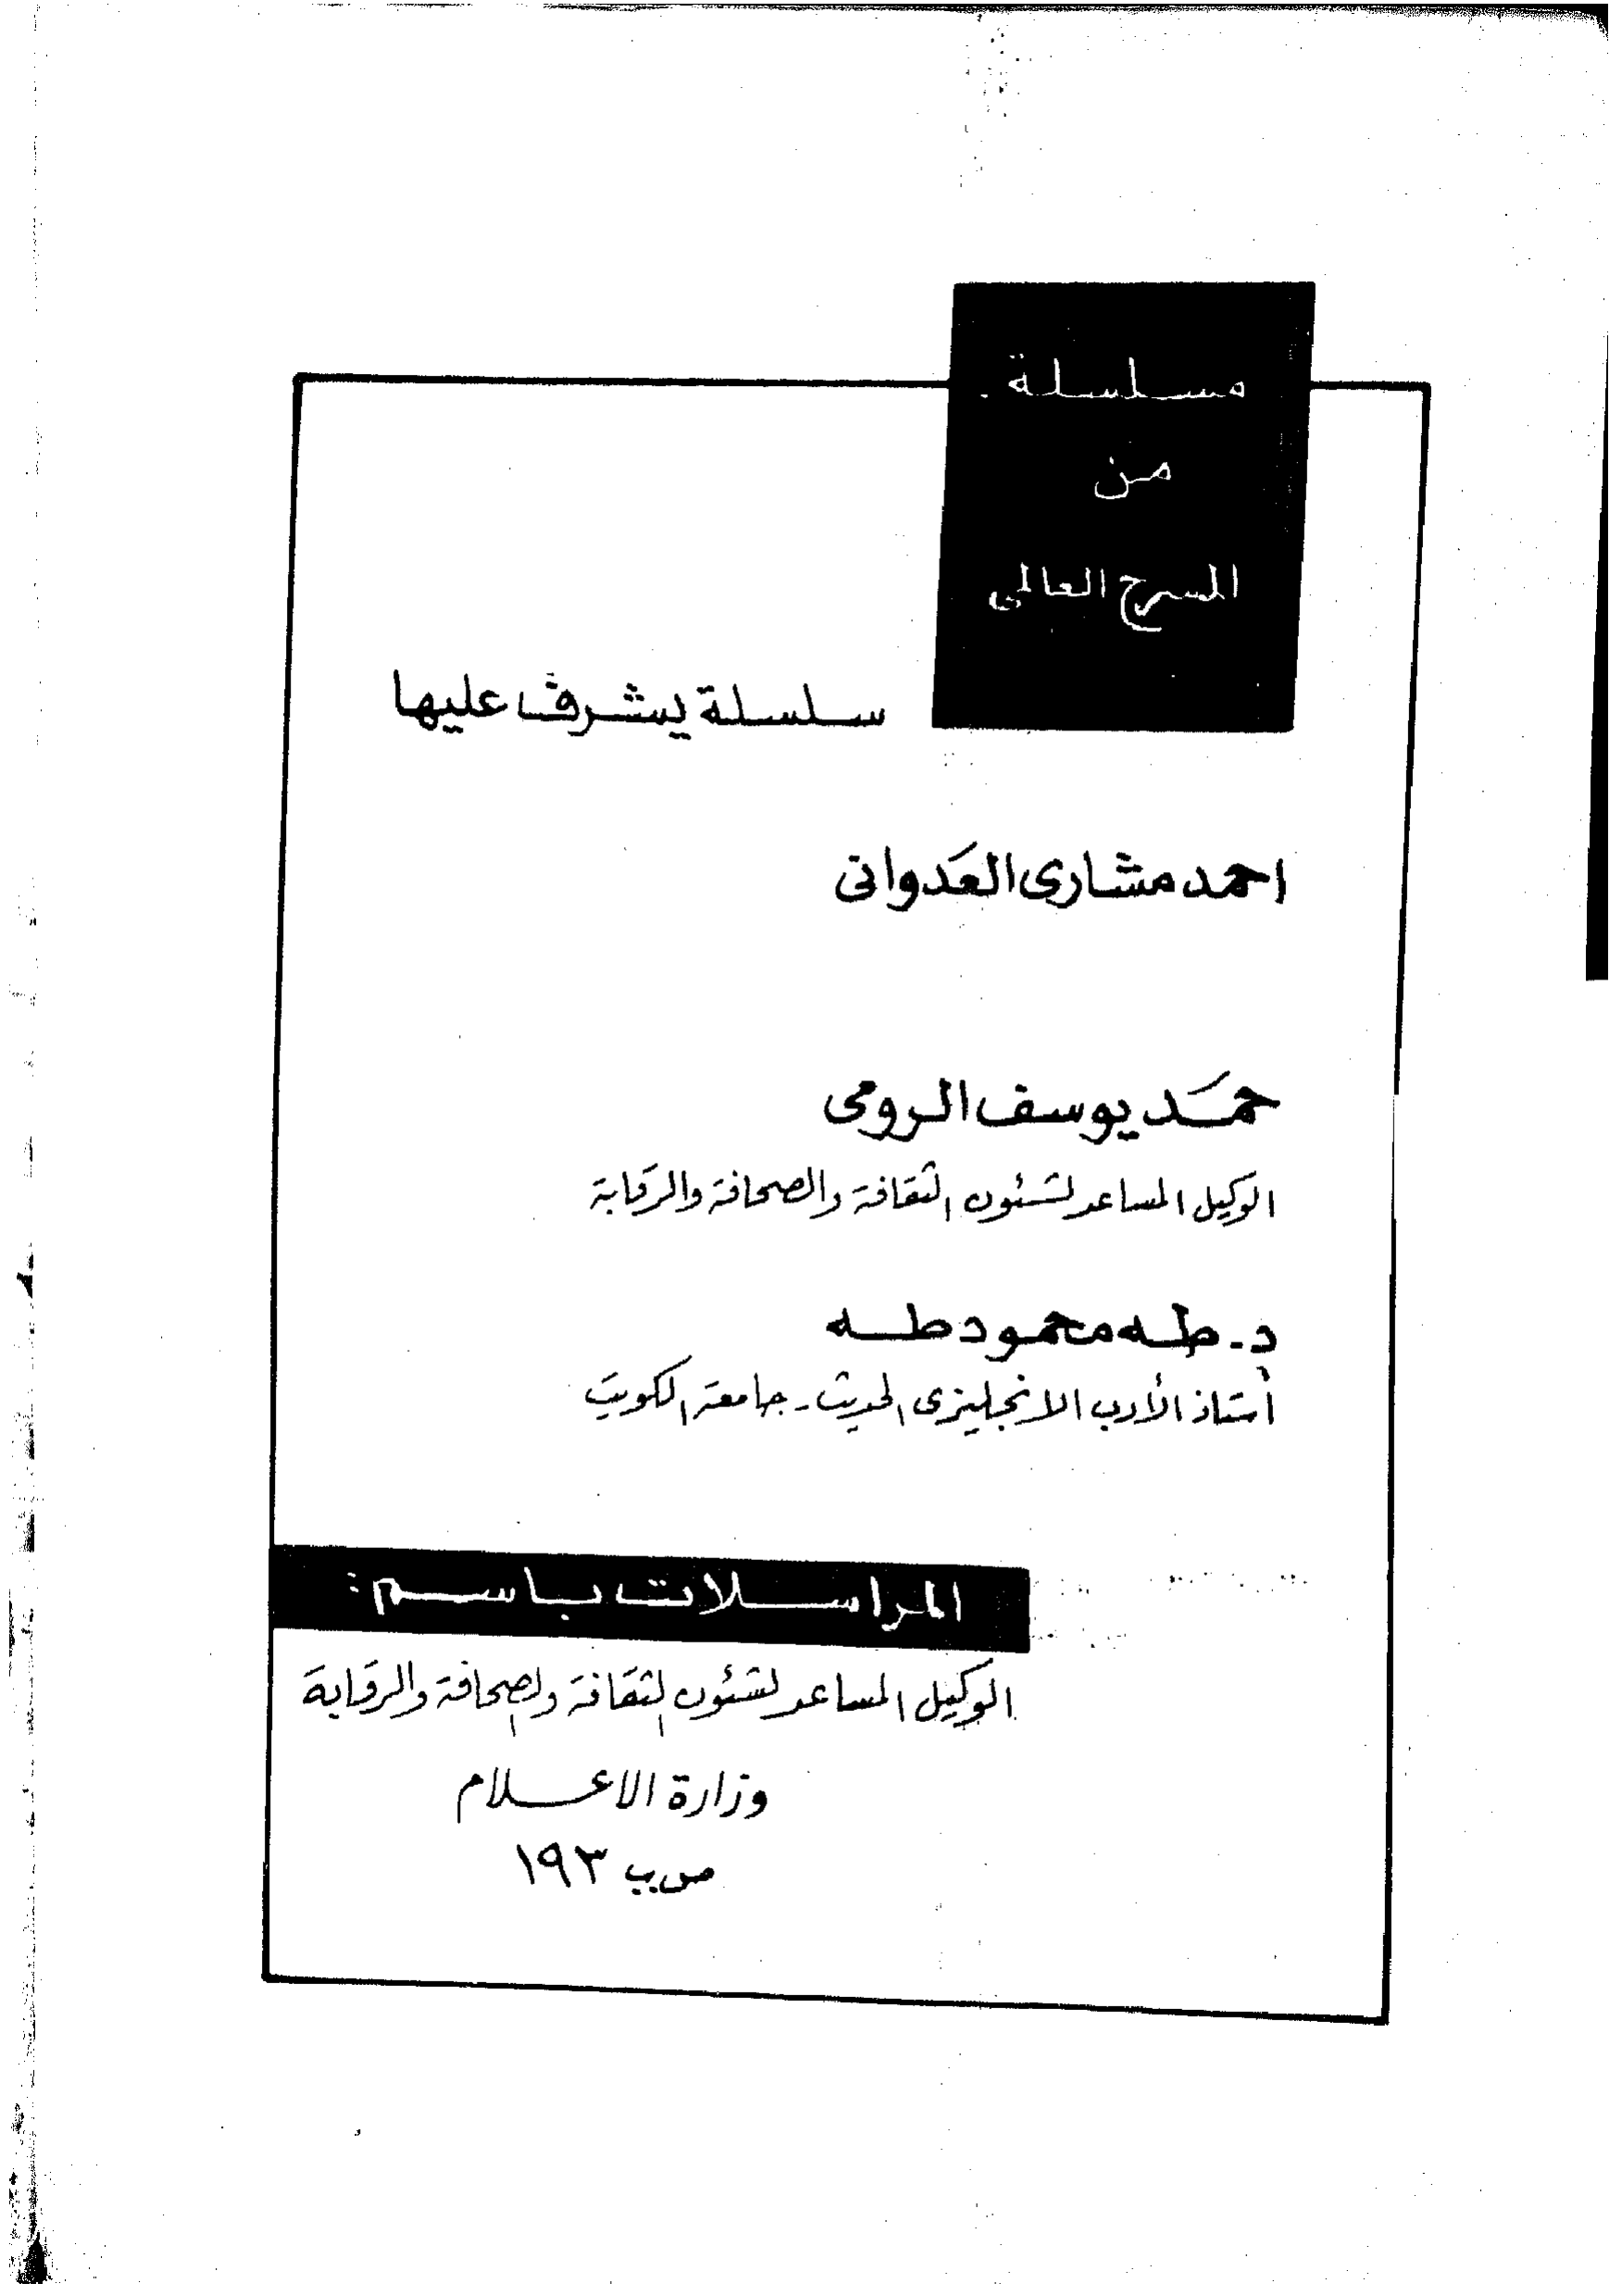 مسلسلة
من
المسرح العالمى
سلسلة يشرف عليها
احمد مشارى العَدوانى
حمَد يوسف الرومى
الوكيل المساعد لشئون الثقافة والصحافة والرقابة
د. طه محمود طه
أستاذ الأدب الانجليزى الحديث - جامعة الكويت
المراسلات باسم :
الوكيل المساعد لشئون الثقافة والصحافة والرقابة
وزارة الاعلام
ص ب ١٩٣